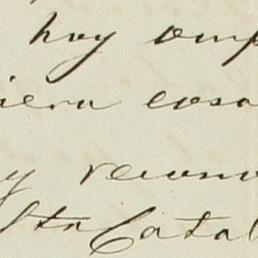 hoy emp
iera cosa
y recono
Sta Catal